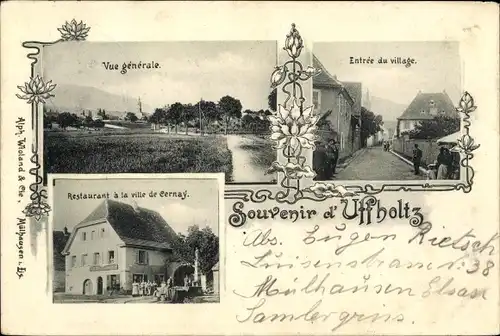 Vue générale.
Entrée du village.
Restaurant à la ville de Cernay.
Alph. Wioland & Cie, Mülhausen i. Els.
Souvenir d'Uffholtz
Abs. Eugen Rietsch
Luisenstrasse 38
Mülhausen Elsass